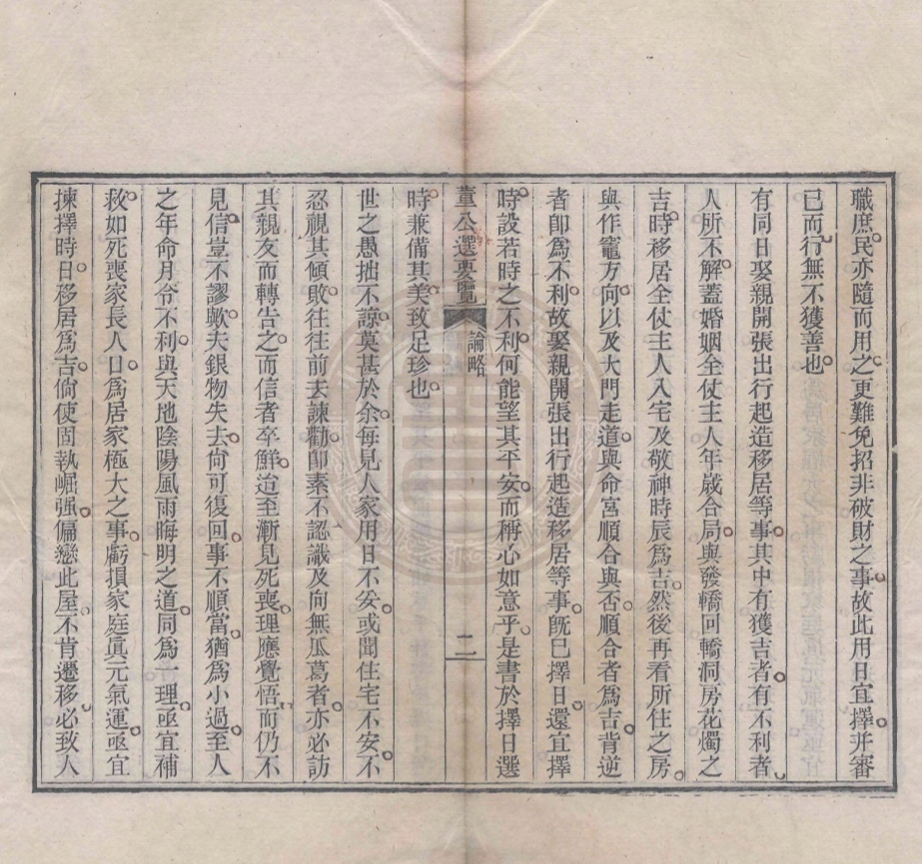 職庶民亦隨而用之更難免招非破財之事故此用日宜擇并審
已而行無不獲善也
有同日娶親開張出行起造移居等事其中有獲吉者有不利者
人所不解蓋婚姻全仗主人年歲合局與發轎回轎洞房花燭之
吉時移居全仗主人入宅及敬神時辰爲吉然後再看所住之房
與作竈方向以及大門走道與命宮順合與否順合者爲吉背逆
者卽爲不利故娶親開張出行起造移居等事旣已擇日還宜擇
時設若時之不利何能望其平安而稱心如意乎是書於擇日選
董公選要覽 論略 二
時兼備其美致足珍也
世之愚拙不諒莫甚於余每見人家用日不妥或聞住宅不安不
忍視其傾敗往往前去諫勸卽素不認識及向無瓜葛者亦必訪
其親友而轉告之而信者卒鮮迨至漸見死喪理應覺悟而仍不
見信豈不謬歟夫銀物失去尙可復回事不順當猶爲小過至人
之年命月令不利與天地陰陽風雨晦明之道同爲一理亟宜補
救如死喪家長人口爲居家極大之事虧損家庭眞元氣運亟宜
揀擇時日移居爲吉倘使固執崛强偏戀此屋不肯遷移必致人